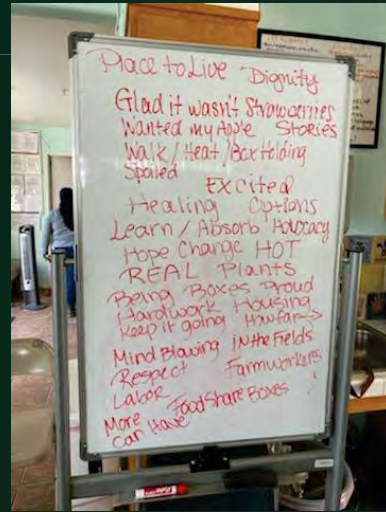 Place to Live Dignity
Glad it wasn't Strawberries
Wanted my Apple Stories
Walk / Heat / Box Holding
Spoiled
Excited
Healing Options
Learn / Absorb Advocacy
Hope Change HOT
REAL Plants
Being Boxes Proud
Hardwork Housing
Keep it going How far →
Mind Blowing in the Fields
Respect Farmworkers
Labor
Food Share Boxes
More
Can Have